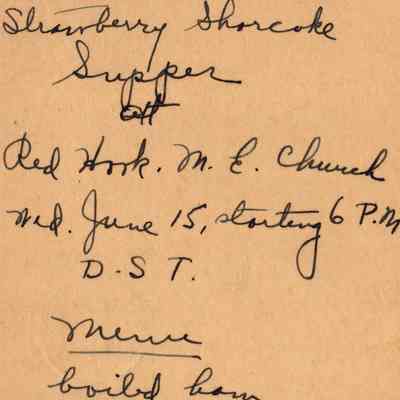 Strawberry Shorcake
Supper
at
Red Hook. M. E. Church
Wed. June 15, starting 6 P.M
D.S T.
Menu
boiled ham